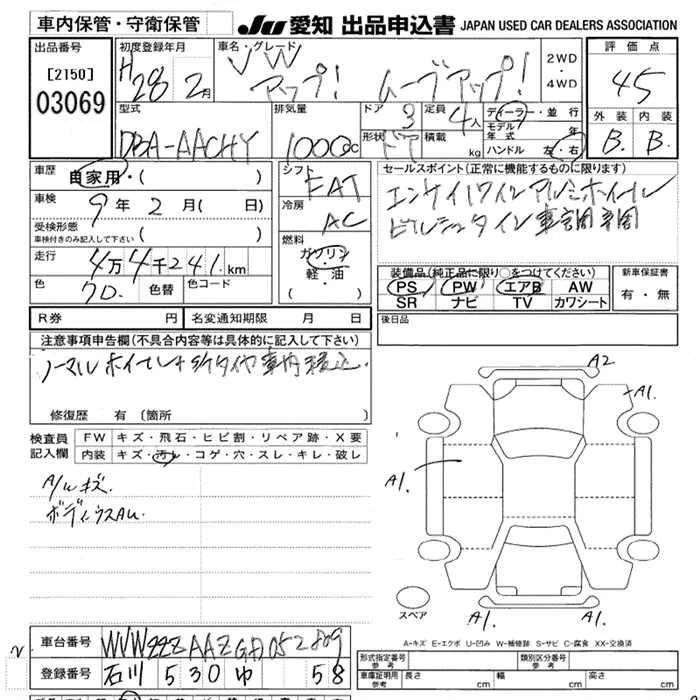 車内保管・守衛保管 JU 愛知 出品申込書 JAPAN USED CAR DEALERS ASSOCIATION
出品番号 [2150] 03069
初度登録年月 H28 2月
車名・グレード VW アップ! ムーブアップ!
2WD・4WD
評価点 45
外装 B. 内装 B.
型式 DBA-AACHY
排気量 1000cc
ドア 3 定員 4人
形状 積載 kg
ディーラー・並行
モデル年式 年
ハンドル 左・右
車歴 自家用・( )
車検 9年 2月( 日)
受検形態
車検付きのみ記入して下さい ( )
走行 4万4千241km
色 色替 色コード
シフト FAT
冷房 AC
燃料 ガソリン・軽・油・( )
セールスポイント(正常に機能するものに限ります)
装備品(純正品に限り○をつけてください)
PS PW エアB AW
SR ナビ TV カワシート
新車保証書 有・無
R券 円 名変通知期限 月 日
後日品
注意事項申告欄(不具合内容等は具体的に記入して下さい)
ノーマルホイール+
修復歴 有 〔箇所
検査員記入欄
FW キズ・飛石・ヒビ割・リペア跡・X要
内装 キズ・汚レ・コゲ・穴・スレ・キレ・破レ
A/wキズ
A2
A1.
A1.
A1.
A1.
スペア
A-キズ E-エクボ U-凹み W-補修跡 S-サビ C-腐食 XX-交換済
車台番号
登録番号 石川 530 ゆ 58
形式指定番号 参考
類別区分番号 参考
車庫証明用 参考 長さ cm 幅 cm 高さ cm